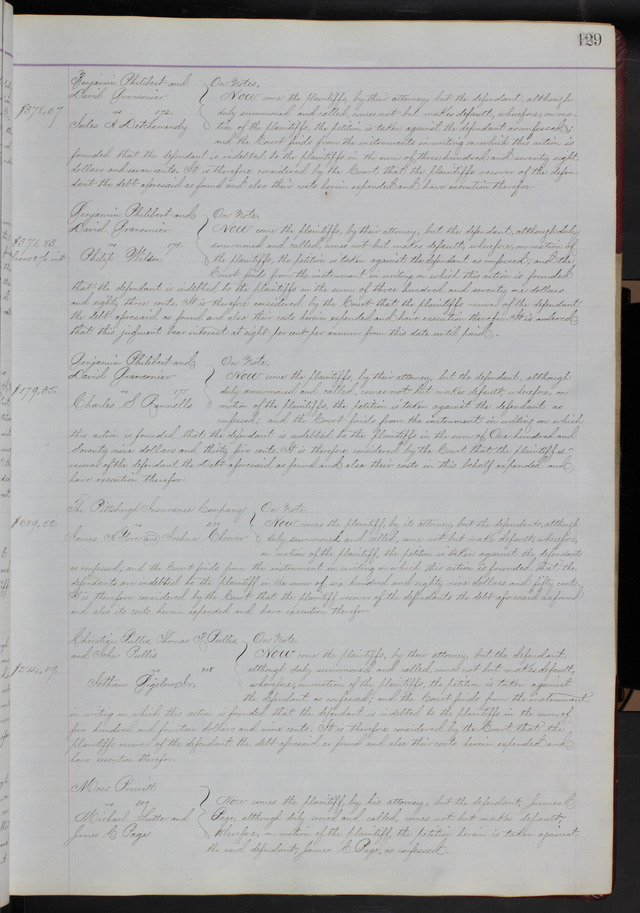 129
Benjamin Philibert and
David Branconier
vs 172.
Jules A Detchemendy
$378.07
On Notes.
Now come the plaintiffs, by their attorney, but the defendant, although
duly summoned and called, comes not but makes default, wherefore, on mo-
tion of the plaintiffs, the petition is taken against the defendant as confessed;
and the Court finds from the instruments in writing on which this action is
founded that the defendant is indebted to the plaintiffs in the sum of three hundred and seventy eight
dollars and seven cents. It is therefore considered by the Court that the plaintiffs recover of the defen-
dant the debt aforesaid as found and also their costs herein expended and have execution therefor.
Benjamin Philibert and
David Branconier
vs
Philip Wilson
$371.83
On Note.
Now come the plaintiffs, by their attorney, but the defendant, although duly
summoned and called, comes not but makes default, wherefore, on motion of
the plaintiffs, the petition is taken against the defendant as confessed; and the
Court finds from the instrument in writing on which this action is founded
that the defendant is indebted to the plaintiffs in the sum of three hundred and seventy one dollars
and eighty three cents. It is therefore considered by the Court that the plaintiffs recover of the defendant
the debt aforesaid as found and also their costs herein expended and have execution therefor. It is ordered
that this judgment bear interest at eight per cent per annum from this date until paid.
Benjamin Philibert and
David Branconier
vs 177
Charles S Rannells
$179.35.
On Note.
Now come the plaintiffs, by their attorney, but the defendant, although
duly summoned and called, comes not but makes default, wherefore, on
motion of the plaintiffs, the petition is taken against the defendant as
confessed; and the Court finds from the instrument in writing on which
this action is founded that the defendant is indebted to the plaintiffs in the sum of One hundred and
seventy nine dollars and thirty five cents. It is therefore considered by the Court that the plaintiffs
recover of the defendant the debt aforesaid as found and also their costs in this behalf expended and
have execution therefor.
The Pittsburgh Insurance Company
vs
James A and Joshua Cheever
$689.50
On Note.
Now comes the plaintiff, by its attorney, but the defendants, although
duly summoned and called, come not but make default, wherefore,
on motion of the plaintiff, the petition is taken against the defendants
as confessed; and the Court finds from the instrument in writing on which this action is founded that the
defendants are indebted to the plaintiff in the sum of six hundred and eighty nine dollars and fifty cents.
It is therefore considered by the Court that the plaintiff recover of the defendants the debt aforesaid as found
and also its costs herein expended and have execution therefor.
Christian Pullis, Thomas Pullis
and John Pullis
vs
Bigelow Jr.
$514.09.
On Note.
Now come the plaintiffs, by their attorney, but the defendant,
although duly summoned and called, comes not but makes default,
wherefore, on motion of the plaintiffs, the petition is taken against
the defendant as confessed; and the Court finds from the instrument
in writing on which this action is founded that the defendant is indebted to the plaintiffs in the sum of
five hundred and fourteen dollars and nine cents. It is therefore considered by the Court that the
plaintiffs recover of the defendant the debt aforesaid as found and also their costs herein expended and
have execution therefor.
Moses
vs
Michael Sutter and
James C Page
Now comes the plaintiff, by his attorney, but the defendant, James C
Page, although duly served and called, comes not but makes default;
Wherefore, on motion of the plaintiff, the petition herein is taken against
the said defendant, James C Page, as confessed.